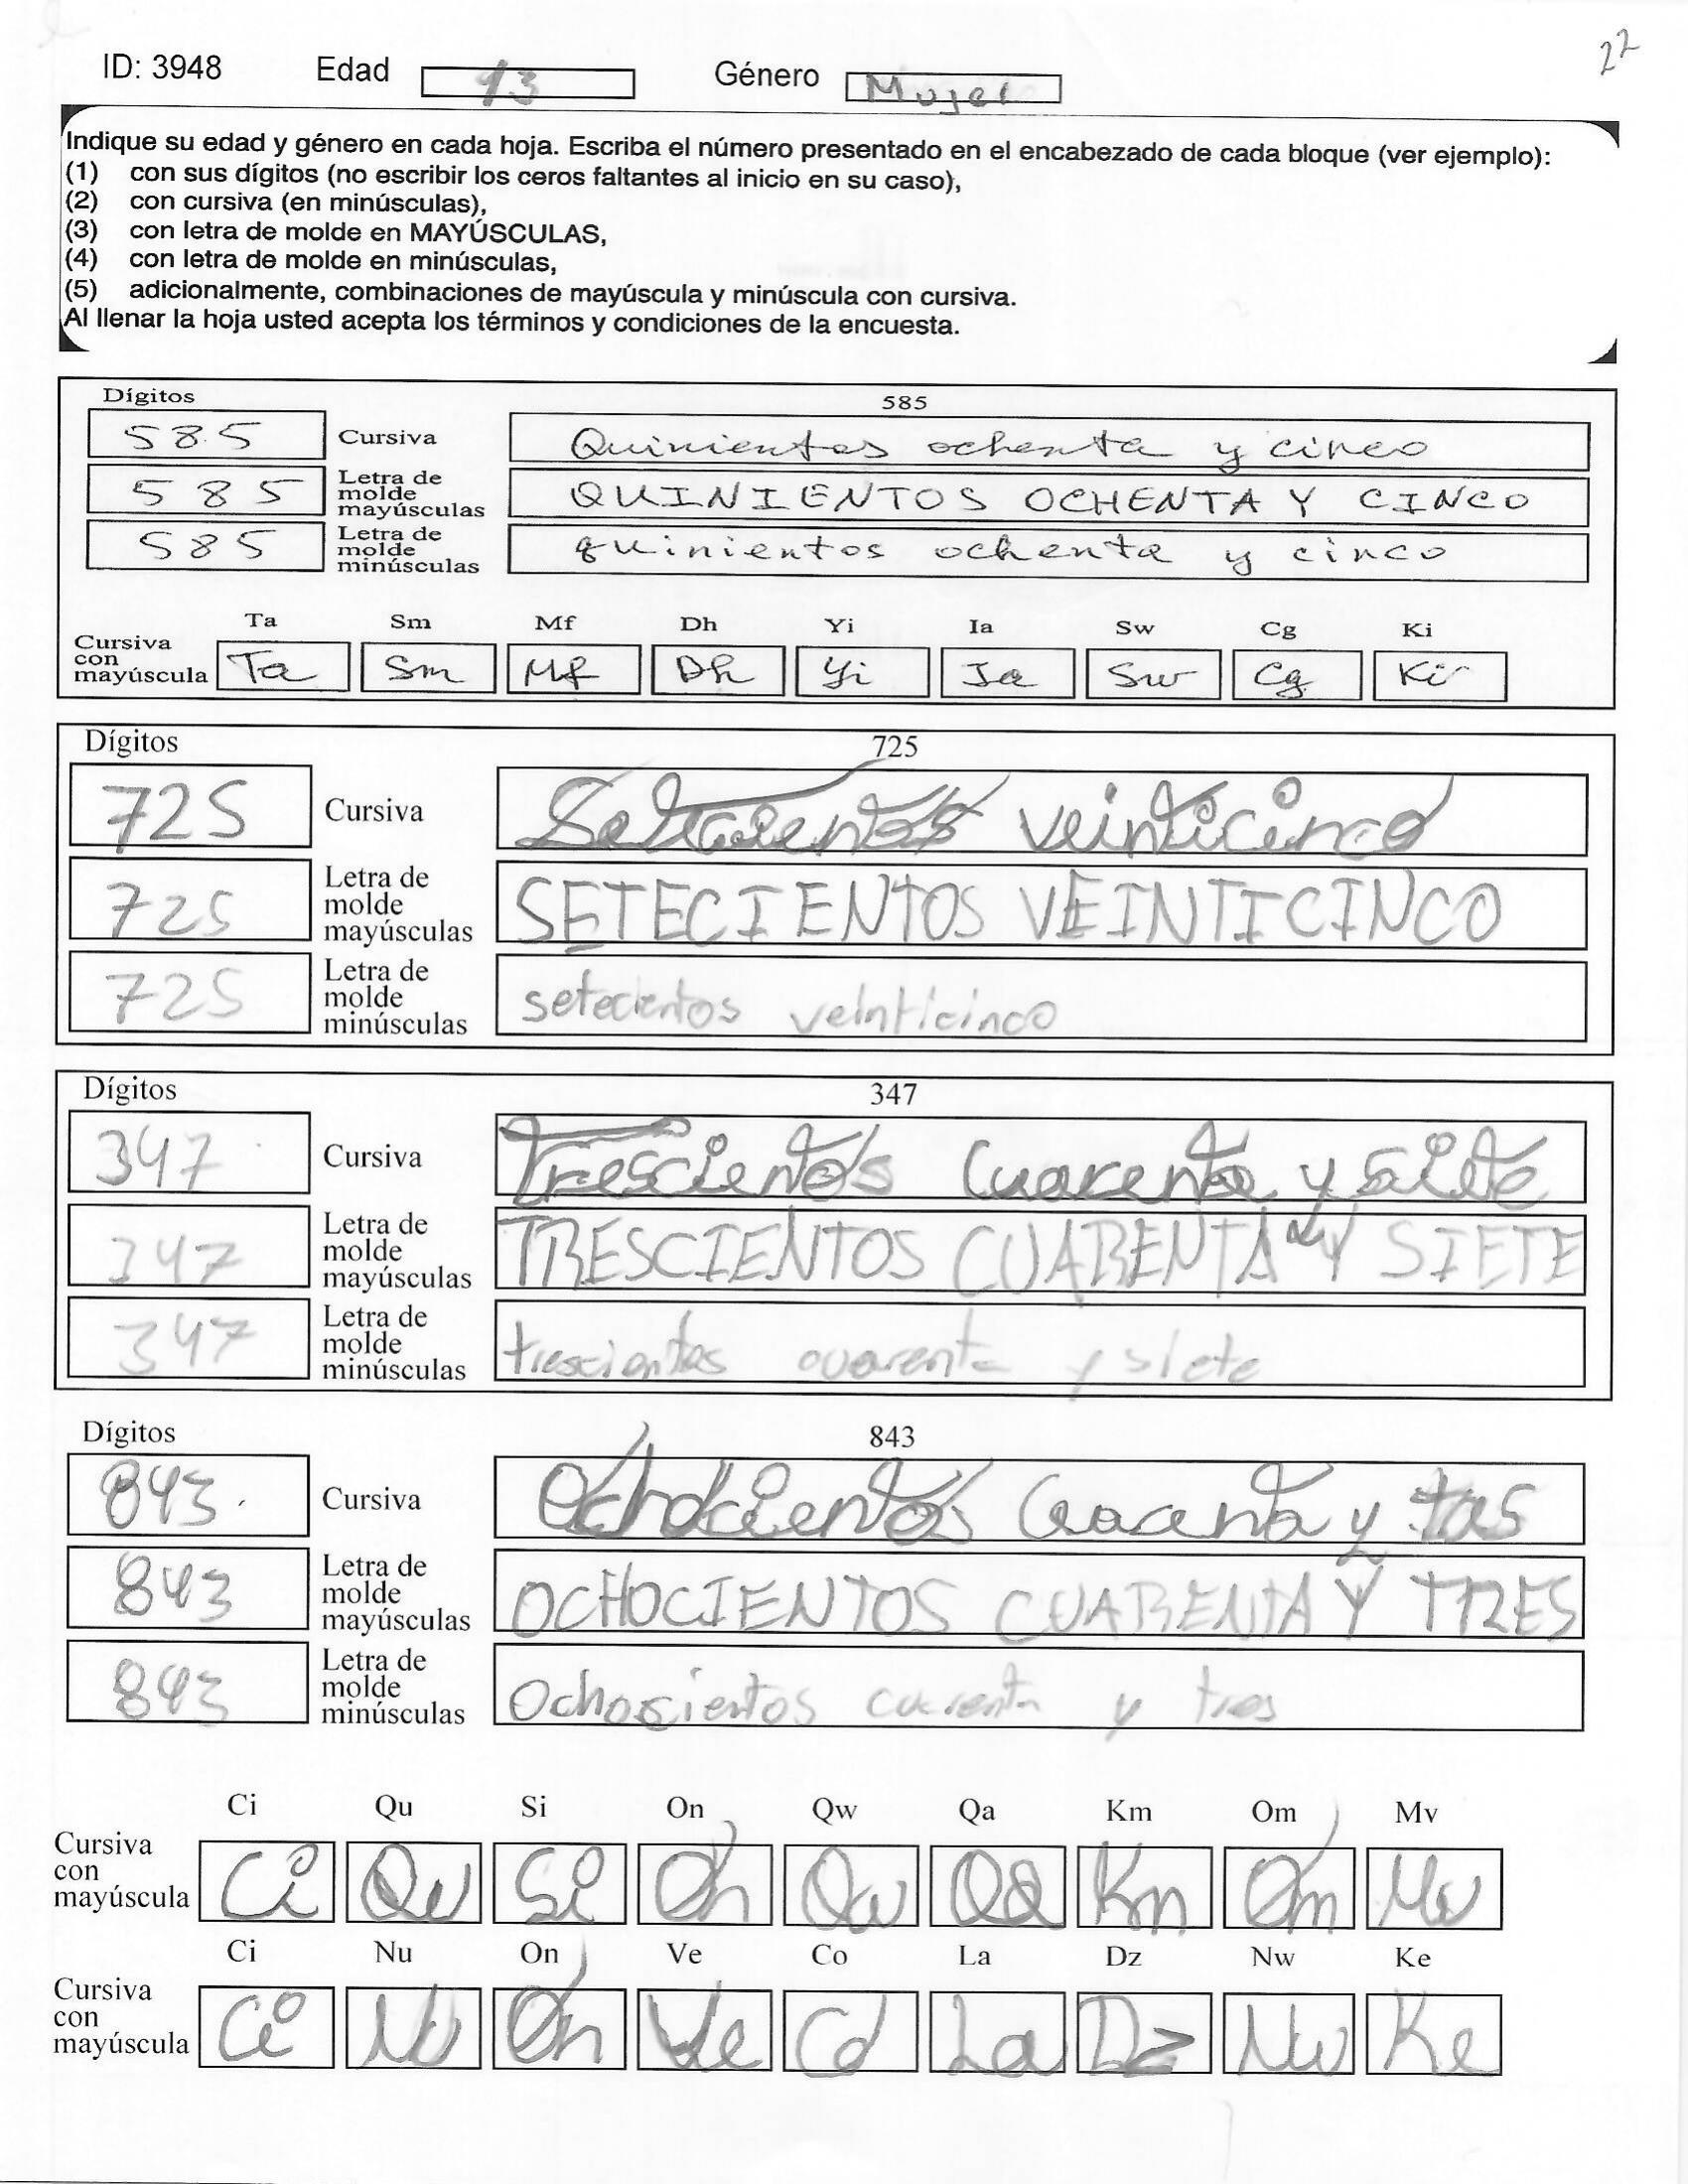 22
ID: 3948 Edad 13 Género Mujer
Indique su edad y género en cada hoja. Escriba el número presentado en el encabezado de cada bloque (ver ejemplo):
(1) con sus dígitos (no escribir los ceros faltantes al inicio en su caso),
(2) con cursiva (en minúsculas),
(3) con letra de molde en MAYÚSCULAS,
(4) con letra de molde en minúsculas,
(5) adicionalmente, combinaciones de mayúscula y minúscula con cursiva.
Al llenar la hoja usted acepta los términos y condiciones de la encuesta.
Dígitos 585
585 Cursiva Quinientos ochenta y cinco
585 Letra de molde mayúsculas QUINIENTOS OCHENTA Y CINCO
585 Letra de molde minúsculas quinientos ochenta y cinco
Ta Sm Mf Dh Yi Ia Sw Cg Ki
Cursiva con mayúscula Ta Sm Mf Dh Yi Ia Sw Cg Ki
Dígitos 725
725 Cursiva Setecientos veinticinco
725 Letra de molde mayúsculas SETECIENTOS VEINTICINCO
725 Letra de molde minúsculas setecientos veinticinco
Dígitos 347
347 Cursiva Trescientos Cuarenta y siete
347 Letra de molde mayúsculas TRESCIENTOS CUARENTA Y SIETE
347 Letra de molde minúsculas trescientos cuarenta y siete
Dígitos 843
843 Cursiva Ochocientos Cuarenta y tres
843 Letra de molde mayúsculas OCHOCIENTOS CUARENTA Y TRES
843 Letra de molde minúsculas Ochocientos cuarenta y tres
Ci Qu Si On Qw Qa Km Om Mv
Cursiva con mayúscula Ci Qu Si On Qw Qa Km Om Mv
Ci Nu On Ve Co La Dz Nw Ke
Cursiva con mayúscula Ci Nu On Ve Co La Dz Nw Ke